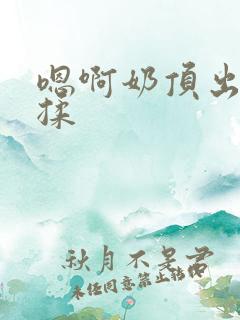 嗯啊奶頂出
揉
秋月不是君
未任同意禁止轉®